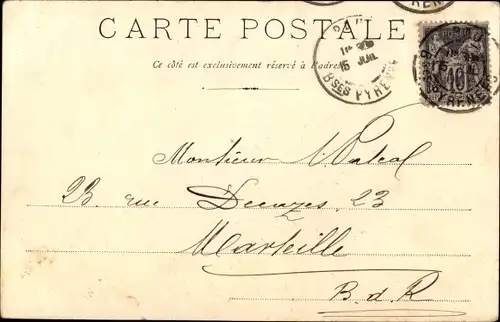 CARTE POSTALE
Ce côté est exclusivement réservé à l'adresse
PAU
15 JUIL
BSES PYRENEES
POSTE
10
PYRENEES
Monsieur
23, rue Decazes, 23
Marseille
B. d. R